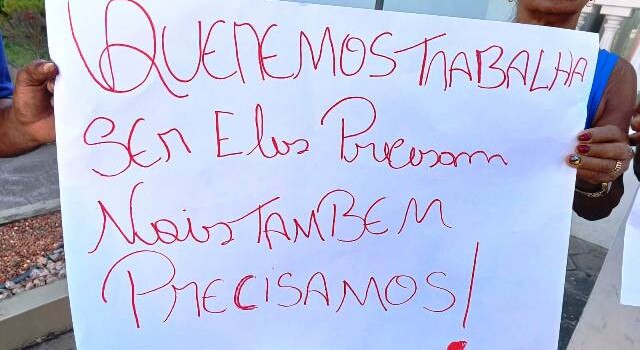 QUEREMOS TRABALHA
SER Elas Precisam
Nois TAMBEM
PRECISAMOS!